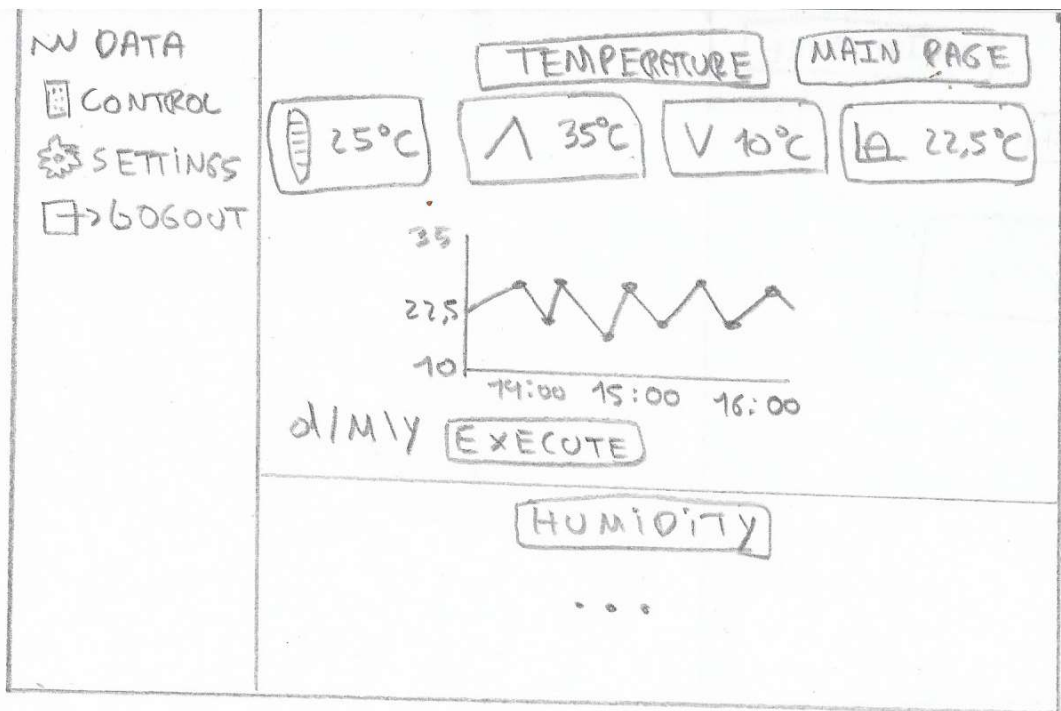 DATA
CONTROL
SETTINGS
LOGOUT
TEMPERATURE MAIN PAGE
25°C 35°C 10°C 22,5°C
35
22,5
10
14:00 15:00 16:00
d/M/y EXECUTE
HUMIDITY
...